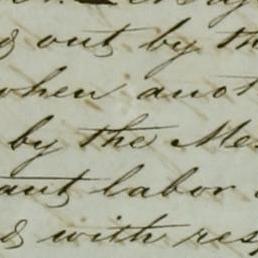 out by th
when anot
by the Mes
ant labor
& with resp